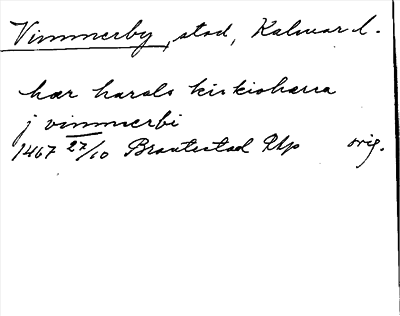 Vimmerby, stad, Kalmar l.
hær harals kirkiohærra
j vimmerbi
1467 27/10 Brautestad Php orig.